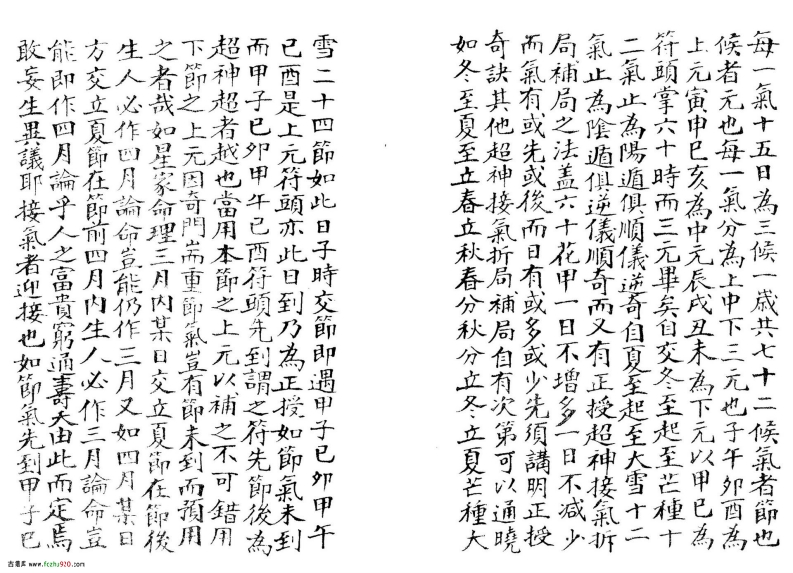 每一氣十五日為三候一歲共七十二候氣者節也
候者元也每一氣分為上中下三元也子午卯酉為
上元寅申巳亥為中元辰戌丑未為下元以甲己為
符頭掌六十時而三元畢矣自交冬至起至芒種十
二氣止為陽遁俱順儀逆奇自夏至起至大雪十二
氣止為陰遁俱逆儀順奇而又有正授超神接氣折
局補局之法蓋六十花甲一日不增多一日不減少
而氣有或先或後而日有或多或少先須講明正授
奇訣其他超神接氣折局補局自有次第可以通曉
如冬至夏至立春立秋春分秋分立冬立夏芒種大
雪二十四節如此日子時交節即遇甲子己卯甲午
己酉是上元符頭亦此日到乃為正授如節氣未到
而甲子己卯甲午己酉符頭先到謂之符先節後為
超神超者越也當用本節之上元以補之不可錯用
下節之上元因奇門耑重節氣豈有節未到而預用
之者哉如星家命理三月內某日交立夏節在節後
生人必作四月論命豈能仍作三月又如四月某日
方交立夏節在節前四月內生人必作三月論命豈
能即作四月論乎人之富貴窮通壽夭由此而定焉
敢妄生異議耶接氣者迎接也如節氣先到甲子己
古籍库 www.fczhu920.com